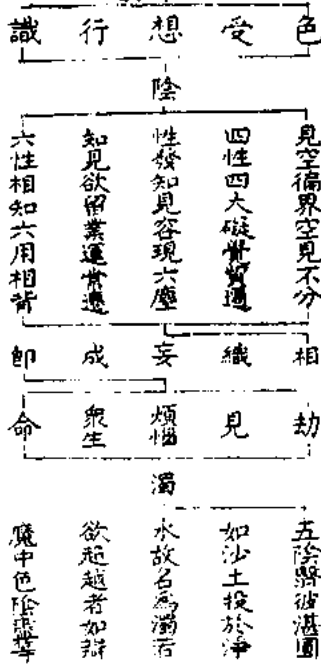 色
受
想
行
識
陰
見空徧界空見不分
四性四大礙覺質通
性發知見容現六塵
知見欲留業運常遷
六性相知六用相背
相
織
妄
成
即
劫
見
煩惱
衆生
命
濁
五陰翳彼湛圓
如沙土投於淨
水故名爲濁若
欲超越者如辯
魔中色陰盡等